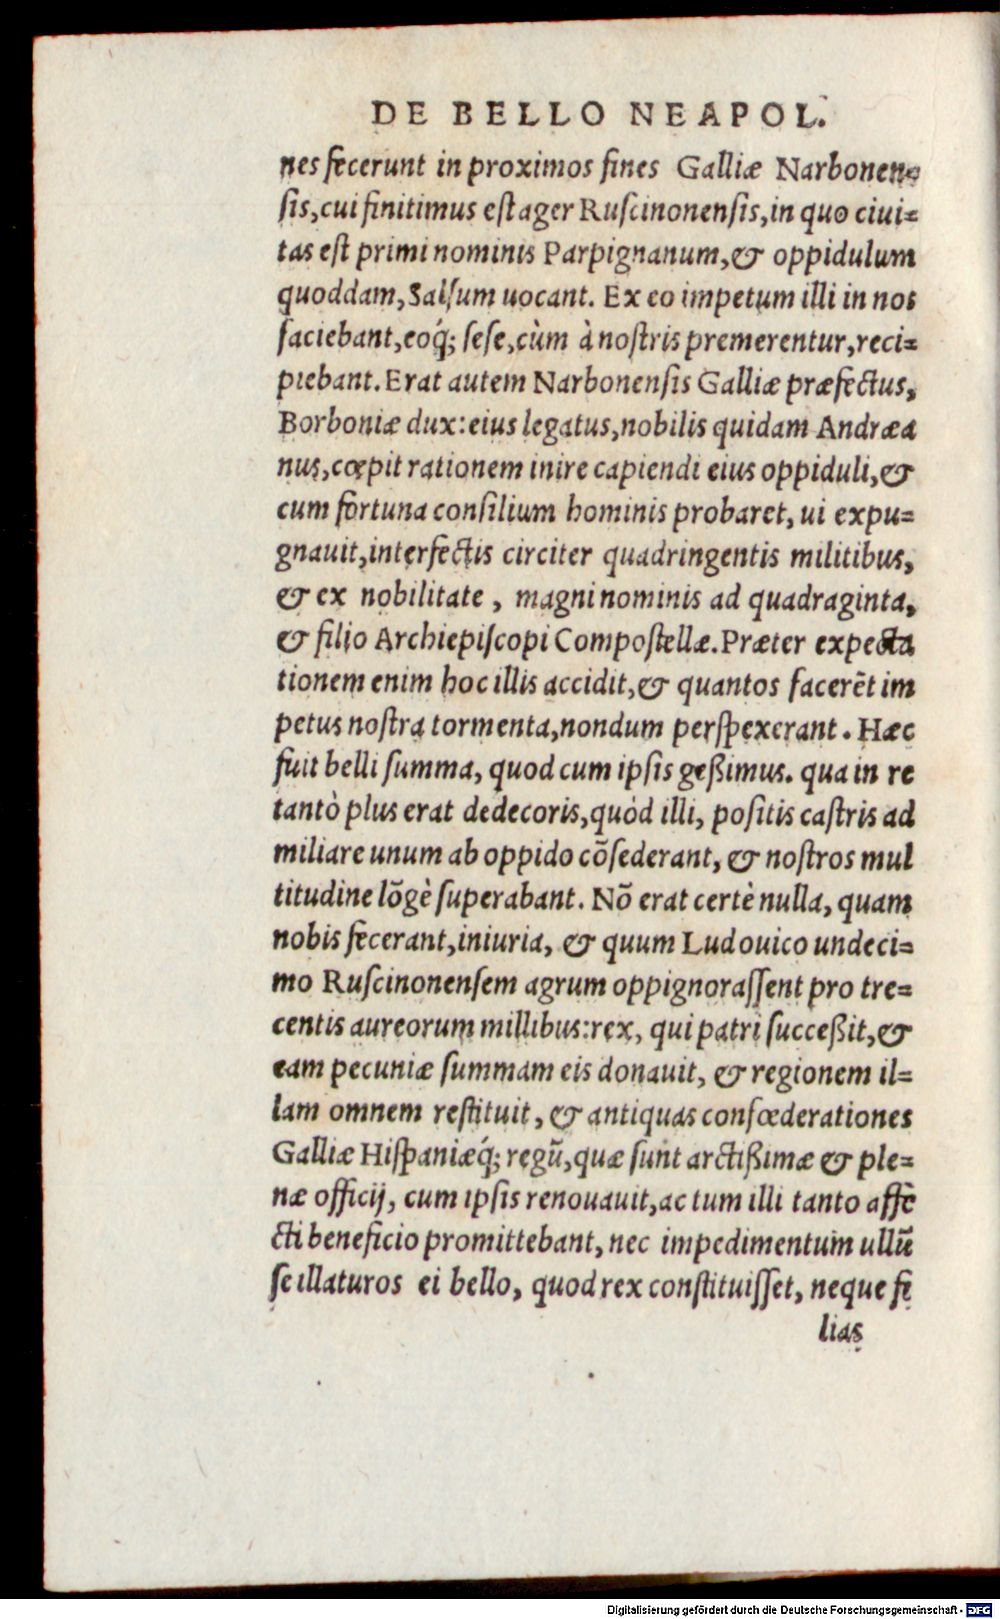 DE BELLO NEAPOL.
nes fecerunt in proximos fines Galliæ Narbonen-
sis, cui finitimus est ager Ruscinonensis, in quo ciui-
tas est primi nominis Parpignanum, & oppidulum
quoddam, Salsum uocant. Ex eo impetum illi in nos
faciebant, eoq́; sese, cùm à nostris premerentur, reci-
piebant. Erat autem Narbonensis Galliæ præfectus,
Borboniæ dux: eius legatus, nobilis quidam Andræa
nus, cœpit rationem inire capiendi eius oppiduli, &
cum fortuna consilium hominis probaret, ui expu-
gnauit, interfectis circiter quadringentis militibus,
& ex nobilitate, magni nominis ad quadraginta,
& filio Archiepiscopi Compostellæ. Præter expecta
tionem enim hoc illis accidit, & quantos facerēt im
petus nostra tormenta, nondum perspexerant. Hæc
fuit belli summa, quod cum ipsis geßimus. qua in re
tantò plus erat dedecoris, quòd illi, positis castris ad
miliare unum ab oppido cōsederant, & nostros mul
titudine lōgè superabant. Nō erat certè nulla, quam
nobis fecerant, iniuria, & quum Ludouico undeci-
mo Ruscinonensem agrum oppignorassent pro tre-
centis aureorum millibus: rex, qui patri succeßit, &
eam pecuniæ summam eis donauit, & regionem il-
lam omnem restituit, & antiquas confœderationes
Galliæ Hispaniæq́; regū, quæ sunt arctißimæ & ple-
næ officij, cum ipsis renouauit, ac tum illi tanto affe
cti beneficio promittebant, nec impedimentum ullū
se illaturos ei bello, quod rex constituisset, neque fi
lias
Digitalisierung gefördert durch die Deutsche Forschungsgemeinschaft - DFG